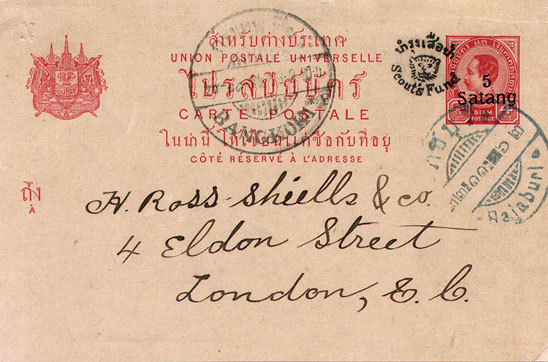 สำหรับต่างประเทศ
UNION POSTALE UNIVERSELLE
ไปรสนียบัตร
CARTE POSTALE
ในน่านี้ ให้เขียนแต่ชื่อกับที่อยู่
CÔTÉ RÉSERVÉ À L'ADRESSE
Scout's Fund
5
Satang
SIAM
POSTAGE
BANGKOK
ราชบุรี
Rajaburi
ถึง
À
H. Ross-Shiells & Co.
4 Eldon Street
London, E. C.